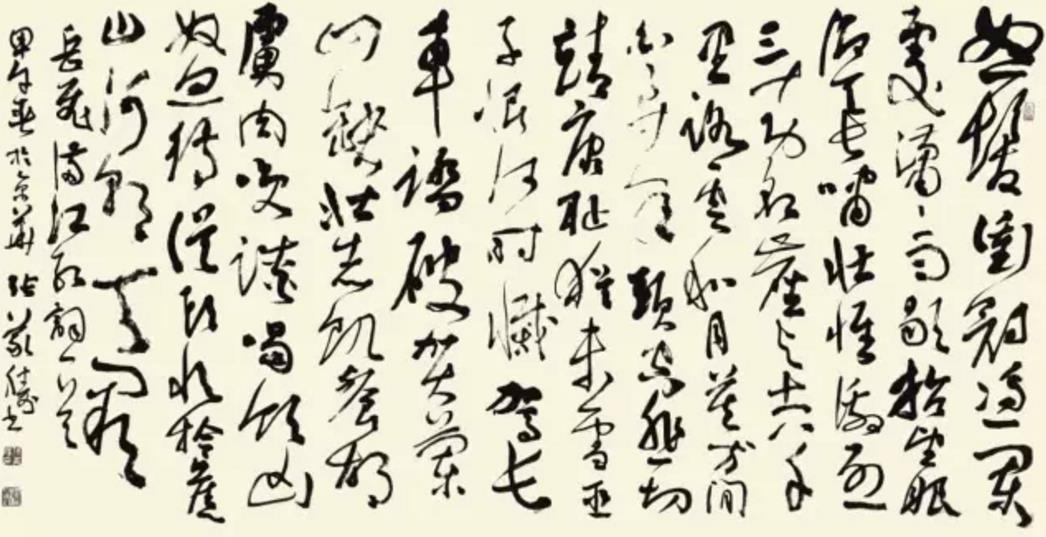 怒髮衝冠憑闌
處瀟瀟雨歇抬望眼
仰天長嘯壯懷激烈
三十功名塵与土八千
里路雲和月莫等閒
白了少年頭空悲切
靖康耻猶未雪臣
子恨何時滅駕長
車踏破賀蘭
山缺壯志飢餐胡
虜肉笑談渴飲匈
奴血待從頭收拾舊
山河朝天闕
岳飛滿江紅詞一首
甲午春於京華張